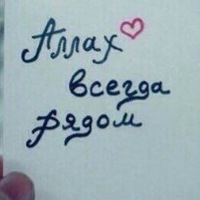 Аллах
всегда
рядом